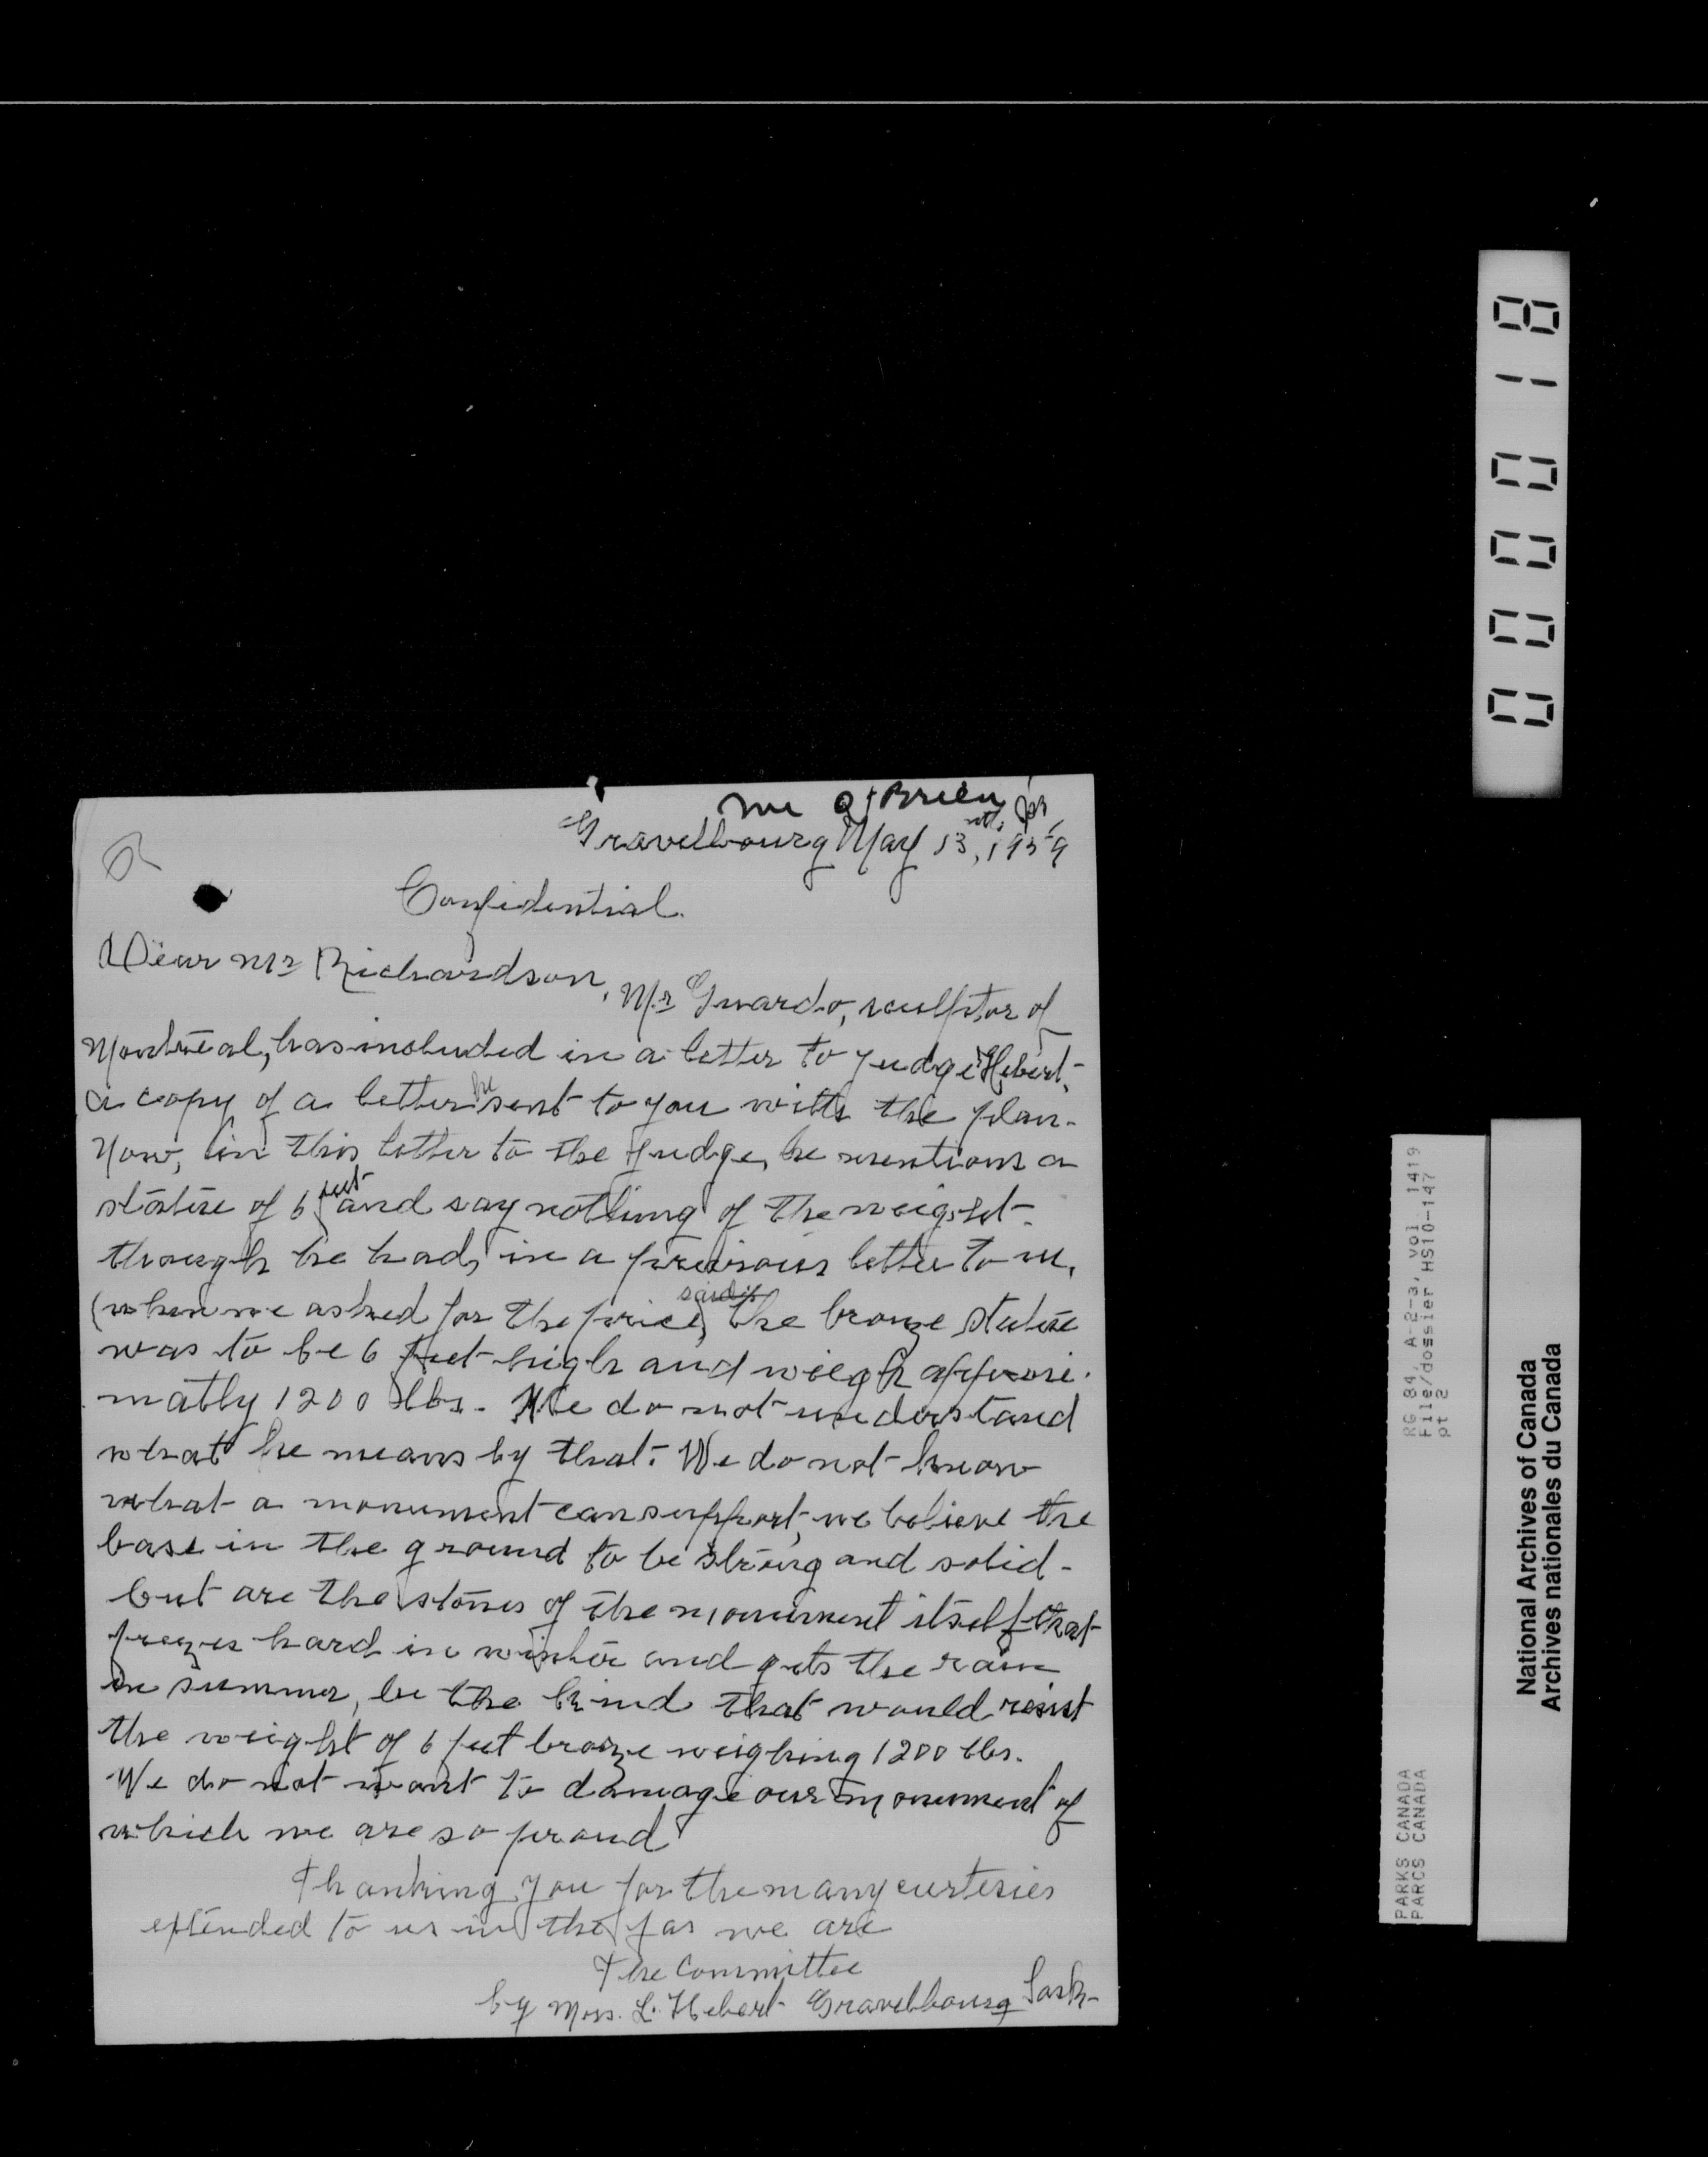 Mr O'Brien
Gravelbourg May 13, 1959
Confidential.
Dear Mr Richardson,
Mr Guardo, sculptor of
Montreal, has included in a letter to Judge Hebert,
a copy of a letter he sent to you with the plan.
Now, in this letter to the Judge, he mentions a
statue of 6 feet and say nothing of the weight.
though he had, in a previous letter to us,
(when we asked for the price) said the bronze statue
was to be 6 feet high and weigh approxi.
matly 1200 lbs. We do not understand
what he means by that. We do not know
what a monument can support, we believe the
base in the ground to be strong and solid -
but are the stones of the monument itself that
freezes hard in winter and gets the rain
in summer, be the kind that would resist
the weight of 6 feet bronze weighing 1200 lbs.
We do not want to damage our monument of
which we are so proud
Thanking you for the many curtesies
extended to us in the far we are
The Committee
by Mrs. L. Hebert Gravelbourg Sask-
000018
RG 84, A-2-a, vol 1419
File/dossier HS10-147
pt 2
PARKS CANADA
PARCS CANADA
National Archives of Canada
Archives nationales du Canada